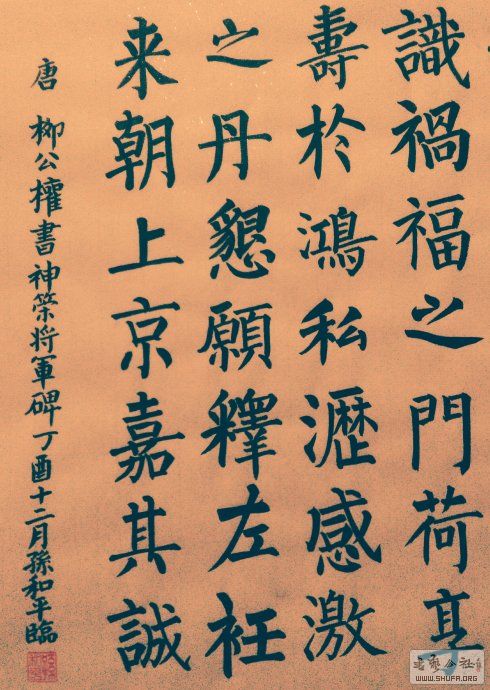 識禍福之門荷亭
壽於鴻私瀝感激
之丹懇願釋左衽
来朝上京嘉其誠
唐 柳公權書神策将軍碑丁酉十二月孫和平臨
WWW.SHUFA.ORG